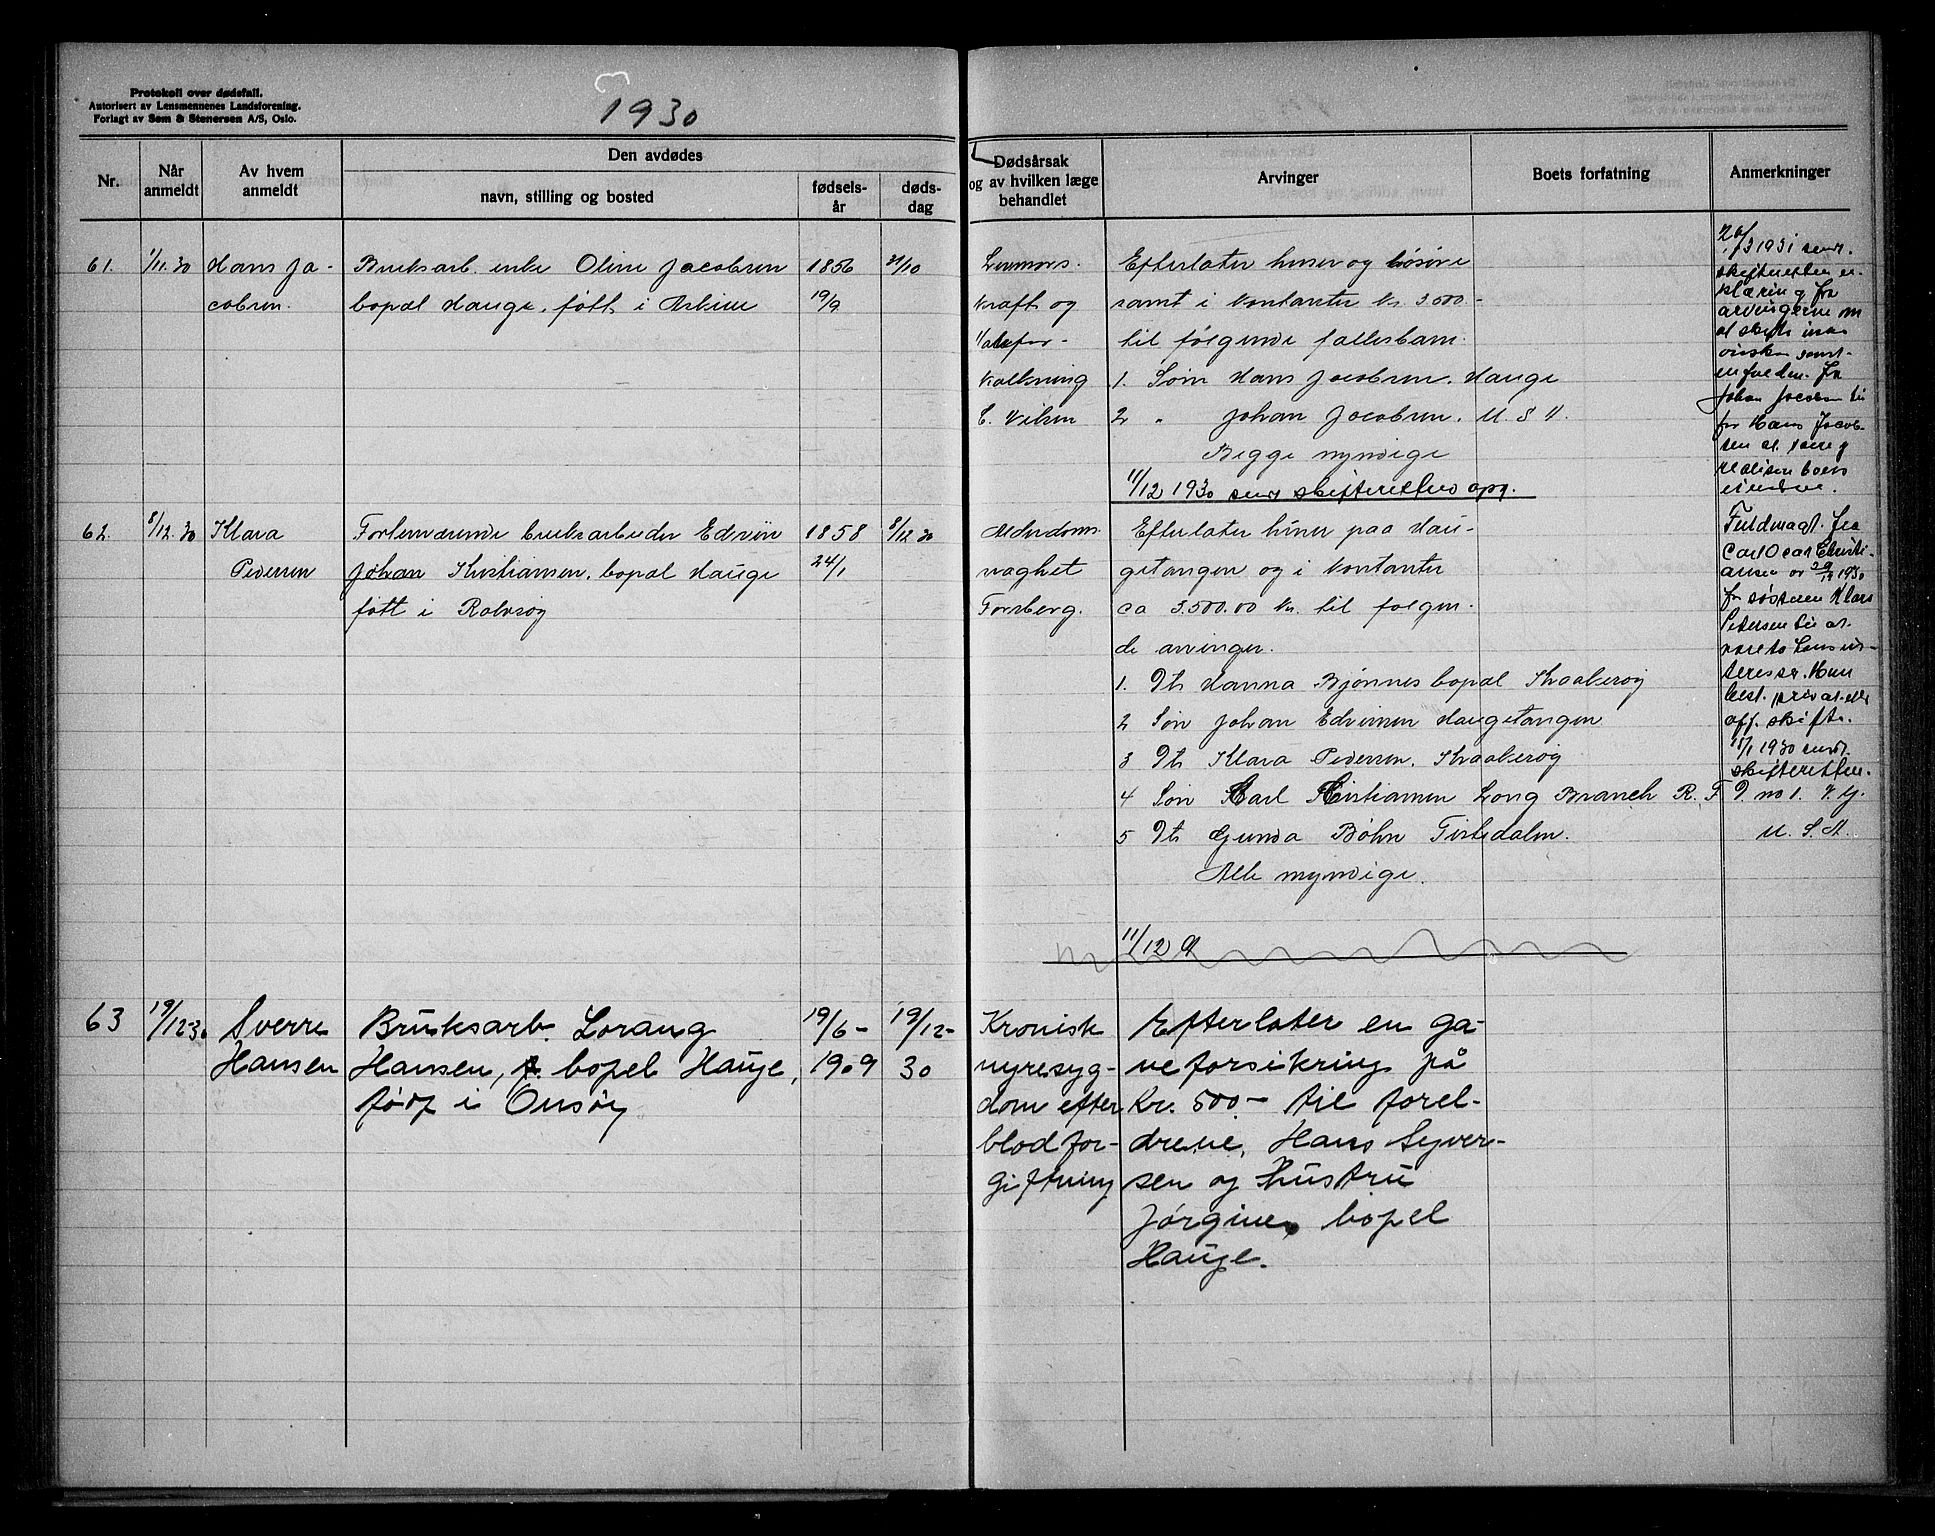 Protokoll over dødsfall.
Autorisert av Lensmennenes Landsforening.
Forlagt av Sem & Stenersen A/S, Oslo.
1930
Nr.
Når
anmeldt
Av hvem
anmeldt
Den avdødes
navn, stilling og bosted
fødsels-
år
døds-
dag
Dødsårsak
og av hvilken læge
behandlet
Arvinger
Boets forfatning
Anmerkninger
61.
1/11.30
Hans Ja-
cobsen.
Bruksarb. enke Oline Jacobsen
bopæl Hauge, født i
1856
19/9
31/10
kraft og
kalkning
E. Nilsen
Efterlater huser og løsøre
samt i kontanter kr. 3500.-
til følgende fællesbarn.
1. Søn Hans Jacobsen. Hauge
2 " Johan Jacobsen. U.S.A.
Begge myndige
11/12 1930 sendt skifteretten opg.
20/3 1931 sendt
skifteretten er-
klæring fra
arvingerne om
at skifte
ønskes samt
fra
Johan Jacobsen til
for Hans Jacob-
sen at
realisere boets
eiendom.
62.
8/12.30
Klara
Pedersen
Forhenværende bruksarbeider Edvin
Johan Kristiansen, bopæl Hauge
født i Rolvsøy
1858
24/1
8/12 30
Alderdoms-
svaghet
Forsberg.
Efterlater huser paa Hau-
getangen og i kontanter
ca 3.500.00 kr. til følgen-
de arvinger.
1. Dtr Hanna Bjønnes bopæl Kraakerøy
2 Søn Johan Edvinsen Haugetangen
3 Dtr Klara Pedersen. Kraakerøy
4 Søn Karl Kristiansen Long Branch R. F D. no 1. N.Y.
U. S. A.
5 Dtr Gunda Bøhn Tistedalen.
Alle myndige.
11/12
Fuldmagt fra
Carl Oscar Christi-
ansen av 29/12 1930
for søsteren Klara
Petersen til at
vareta hans in-
teresser. Han
best. privat eller
off. skifte.
1930 sendt
skifteretten.
63
19/12 30
Sverre
Hansen
Bruksarb. Lorang
Hansen, bopel Hauge,
født i Onsøy
19/6-
1909
19/12-
30
Kronisk
nyresyg-
dom efter
blodfor-
giftning
Efterlater en ga-
veforsikring på
Kr. 500.- til forel-
drene, Hans Syver-
sen og hustru
Jørgine, bopel
Hauge.